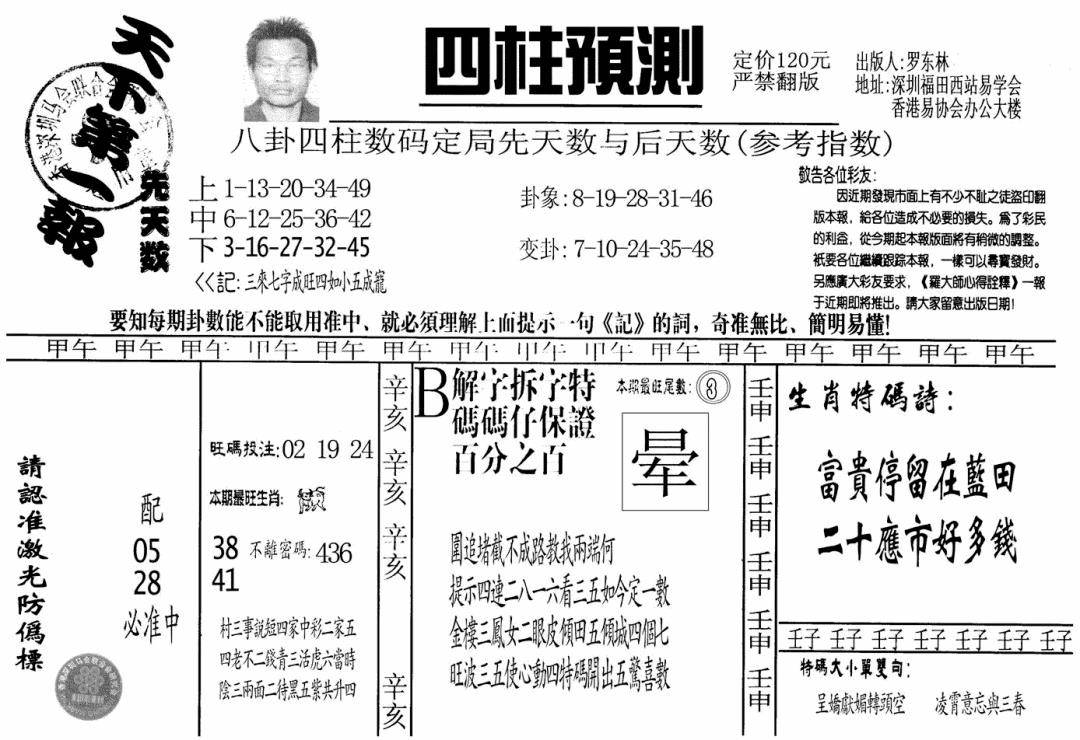 天下第一報
四柱預測
定价120元
严禁翻版
出版人:罗东林
地址:深圳福田西站易学会
香港易协会办公大楼
八卦四柱数码定局先天数与后天数(参考指数)
先天数
上 1-13-20-34-49
中 6-12-25-36-42
下 3-16-27-32-45
<<記:三來七字成旺四如小五成寵
卦象:8-19-28-31-46
变卦:7-10-24-35-48
敬告各位彩友:
因近期發現市面上有不少不恥之徒盜印翻
版本報,給各位造成不必要的損失。爲了彩民
的利益,從今期起本報版面將有稍微的調整。
衹要各位繼續跟踪本報,一樣可以尋寶發財。
另應廣大彩友要求,《羅大師心得詮釋》一報
于近期即將推出。請大家留意出版日期!
要知每期卦數能不能取用准中、就必須理解上面提示一句《記》的詞,奇准無比、簡明易懂!
甲午 甲午 甲午 甲午 甲午 甲午 甲午 甲午 甲午 甲午 甲午 甲午 甲午 甲午 甲午
請認准激光防僞標
配
05
28
必准中
旺碼投注:02 19 24
本期最旺生肖:
38 不離密碼:436
41
村三事説短四家中彩二家五
四老不二錢青三活虎六當時
陰三兩面二待黑五紫共升四
辛亥
辛亥
辛亥
辛亥
B 解字拆字特
碼碼仔保證
百分之百
本期最旺尾數:3
暈
圍追堵截不成路教我兩端何
提示四連二八一六看三五如今定一數
金樓三鳳女二眼皮傾田五傾城四個七
旺波三五使心動四特碼開出五驚喜數
壬申
壬申
壬申
壬申
壬申
壬申
生肖特碼詩:
富貴停留在藍田
二十應市好多錢
壬子 壬子 壬子 壬子 壬子 壬子 壬子
特碼大小單雙句:
呈嬌獻媚轉頭空 凌霄意忘與三春